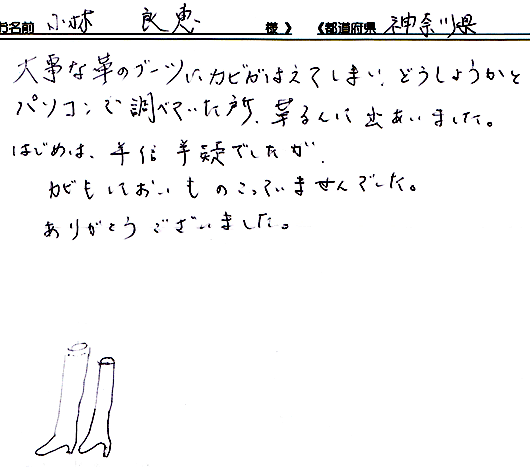 お名前 小林 良恵 様 》 《都道府県 神奈川県
大事な革のブーツにカビがはえてしまい、どうしようかと
パソコンで調べていた所、革るんに出あいました。
はじめは、半信半疑でしたが、
カビもにおいものこっていませんでした。
ありがとうございました。